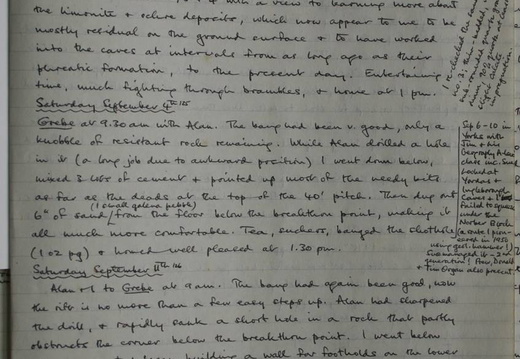 & with a view to learning more about
the limonite & ochre deposits, which now appear to me to be
mostly residual on the ground surface & to have worked
into the caves at intervals from as long ago as their
phreatic formation, to the present day. Entertaining
time, much fighting through brambles, & home at 1 pm.
Saturday September 4th
Grebe at 9.30am with Alan. The bang had been v. good, only a
knobble of resistant rock remaining. While Alan drilled a hole
in it (a long job due to awkward position) I went down below,
mixed 3 lots of cement & pointed up most of the needy bits
as far as the deads at the top of the 40' pitch. Then dug out
(1 small galena pebble)
6" of sand/from the floor below the breakthro point, making it
all much more comfortable. Tea, banged the shothole
(1 oz pg) & homed well pleased at 1.30 pm.
Saturday September 11th
Alan & I to Grebe at 9am. The bang had again been good, now
the rift is no more than a few easy steps up. Alan had sharpened
the drill, & rapidly sank a short hole in a rock that partly
obstructs the corner below the breakthro point. I went below
building a wall for footholds on the lower
I checked the
Sep 6-10 in
Yorks with
Jim & his
Geography A level
class inc. Sue.
Looked at
Yordas &
Ingleborough
Caves &
failed to pass
under the
Norber Block
pion-
eered in 1950
using geol. hammer!)
Sue managed it - 2nd
generation!
& Tim Organ also present